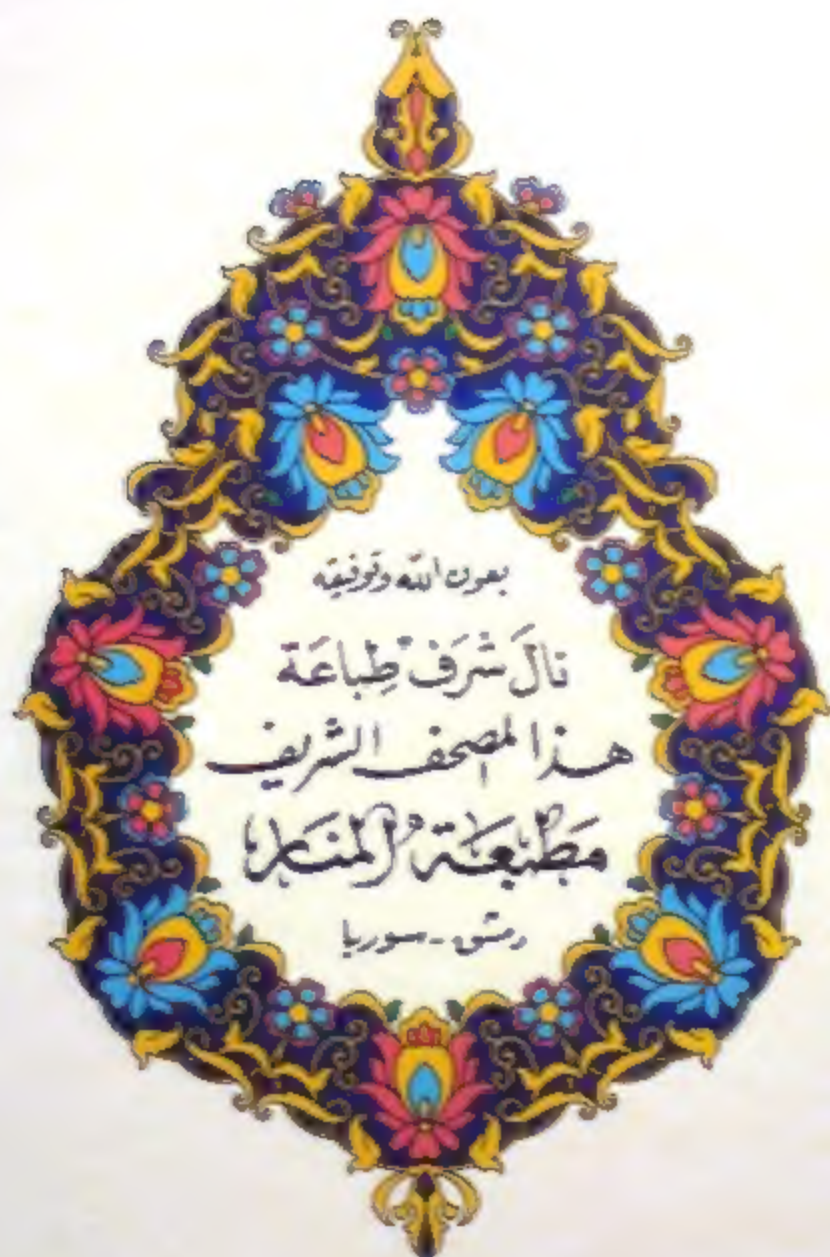 بعون الله وتوفيقه
نالَ شَرَفَ طِباعَة
هذا المصحف الشريف
مَطْبَعَة المَنَار
دمشق - سوريا